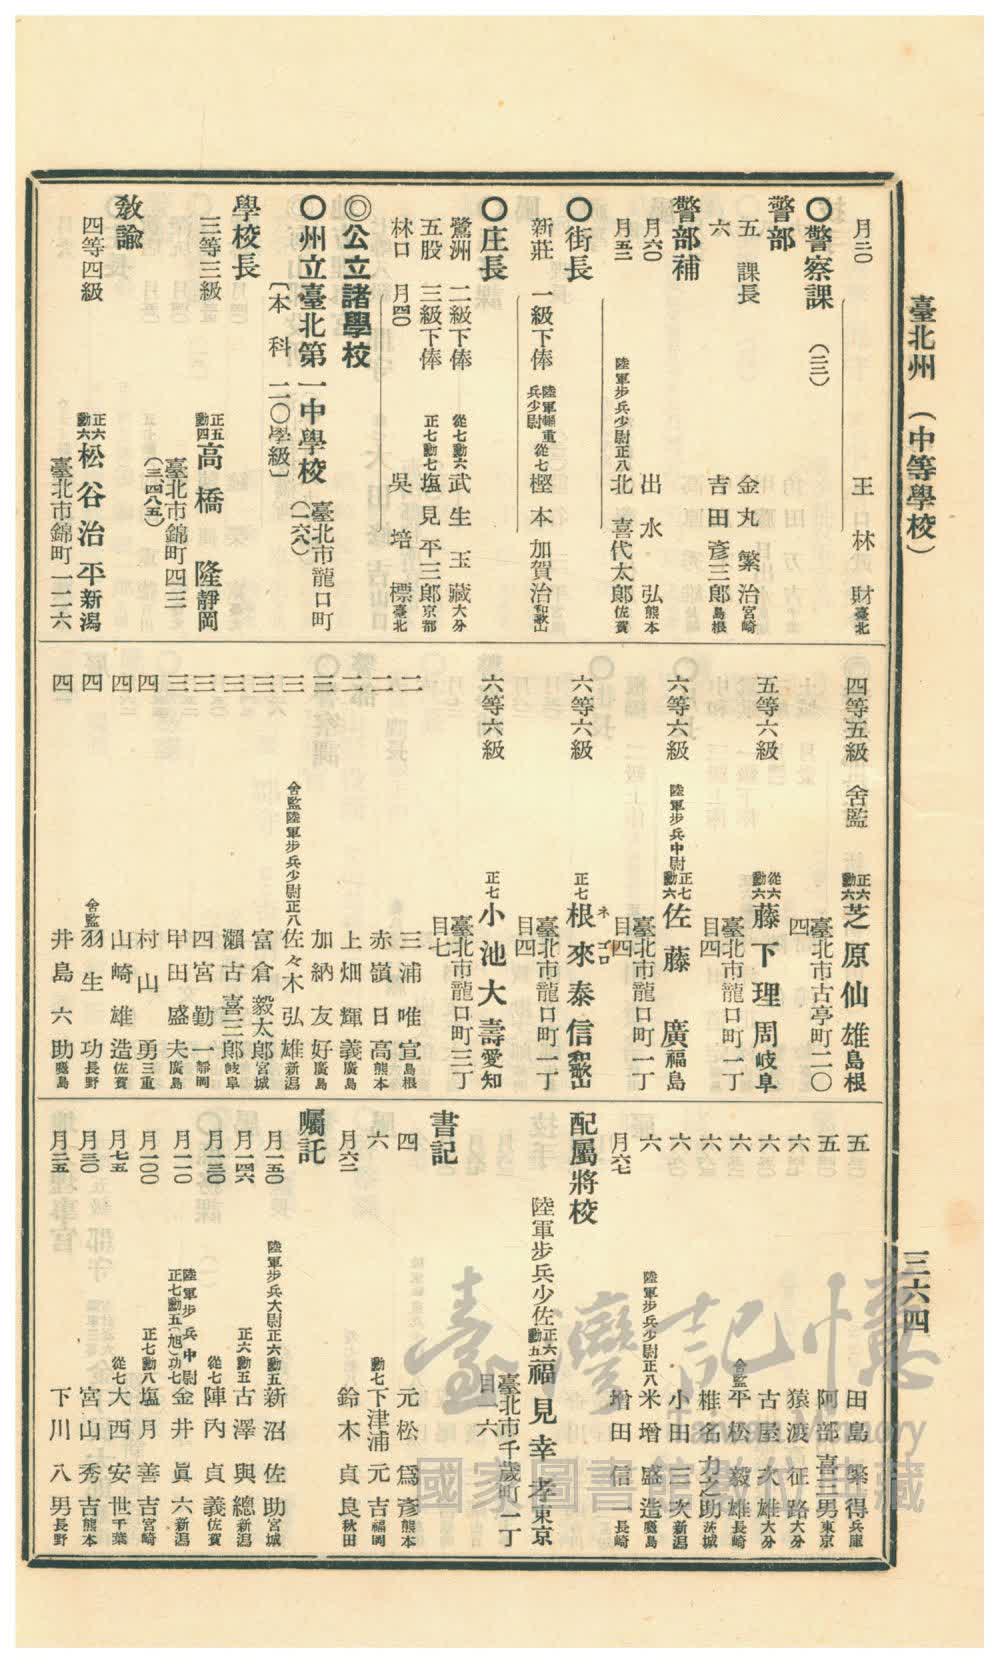 臺北州（中等學校）
三六四
月二〇 王林財臺北
〇警察課（三三）
警部
五 課長 金丸繁治宮崎
六 吉田彥三郎島根
警部補
月六〇 出水弘熊本
月五三 陸軍步兵少尉正八北喜代太郎佐賀
〇街長
新莊 一級下俸 陸軍輜重兵少尉 從七 樫本加賀治和歌山
〇庄長
鷺洲 二級下俸 從七勳六武生玉藏大分
五股 三級下俸 正七勳七塩見平三郎京都
林口 月四〇 吳培標臺北
◎公立諸學校
〇州立臺北第一中學校（一六八）臺北市龍口町
〔本科 二〇學級〕
學校長
三等三級 正五勳四高橋隆靜岡
臺北市錦町四三
（三四八五）
敎諭
四等四級 正六勳六松谷治平新潟
臺北市錦町一二六
四等五級 舍監 正六勳六芝原仙雄島根
臺北市古亭町二〇四
五等六級 從六勳六藤下理周岐阜
臺北市龍口町一丁目四
六等六級 陸軍步兵中尉正七勳六佐藤廣福島
臺北市龍口町一丁目四
六等六級 正七根來泰信和歌山
ネゴロ
臺北市龍口町一丁目四
六等六級 正七小池大壽愛知
臺北市龍口町三丁目七
二 三浦唯宣島根
二 赤嶺日高熊本
二 上畑輝義廣島
三 加納友好廣島
三 舍監陸軍步兵少尉正八佐々木弘雄新潟
三 富倉毅太郎宮城
三 瀨古喜三郎岐阜
三 四宮勤一靜岡
三 甲田盛夫廣島
四 村山勇三重
四 山崎雄造佐賀
四 舍監羽生功長野
四 井島六助鹿島
五 田島榮得兵庫
五 阿部喜三男東京
六 猿渡征路大分
六 古屋次雄大分
六 舍監平松毅雄長崎
六 椎名力之助茨城
六 小田三次新潟
六 陸軍步兵少尉正八米增盛造鹿島
月六七 增田信一長崎
配屬將校
陸軍步兵少佐正六勳五福見幸孝東京
臺北市千歲町一丁目一六
書記
四 元松爲彥熊本
六 勳七下津浦元吉福岡
月六三 鈴木貞良秋田
囑託
月一五〇 陸軍步兵大尉正六勳五新沼佐助宮城
月一四六 正六勳五古澤與總新潟
月一三〇 從七陣內貞義佐賀
月一一〇 陸軍步兵中尉正七勳五（旭）功七金井眞六新潟
月一〇〇 正七勳八塩月善吉宮崎
月七五 從七大西安世千葉
月三〇 宮山秀吉熊本
月二五 下川八男長野
臺灣記憶
Taiwan Memory
國家圖書館數位典藏